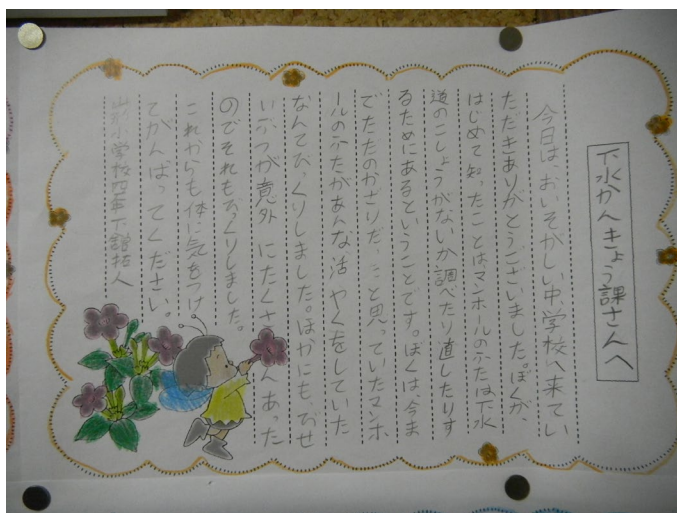 下水かんきょう課さんへ
今日は、おいそがしい中、学校へ来てい
ただきありがとうございました。ぼくが、
はじめて知ったことはマンホールのふたは下水
道のこしょうがないか調べたり直したりす
るためにあるということです。ぼくは今ま
でただのかざりだ、と思っていたマンホ
ールのふたがあんな活やくをしていた
なんてびっくりしました。ほかにも、びせ
いぶつが意外にたくさんあった
のでそれもびっくりしました。
これからも体に気をつけ
てがんばってください。
小学校四年